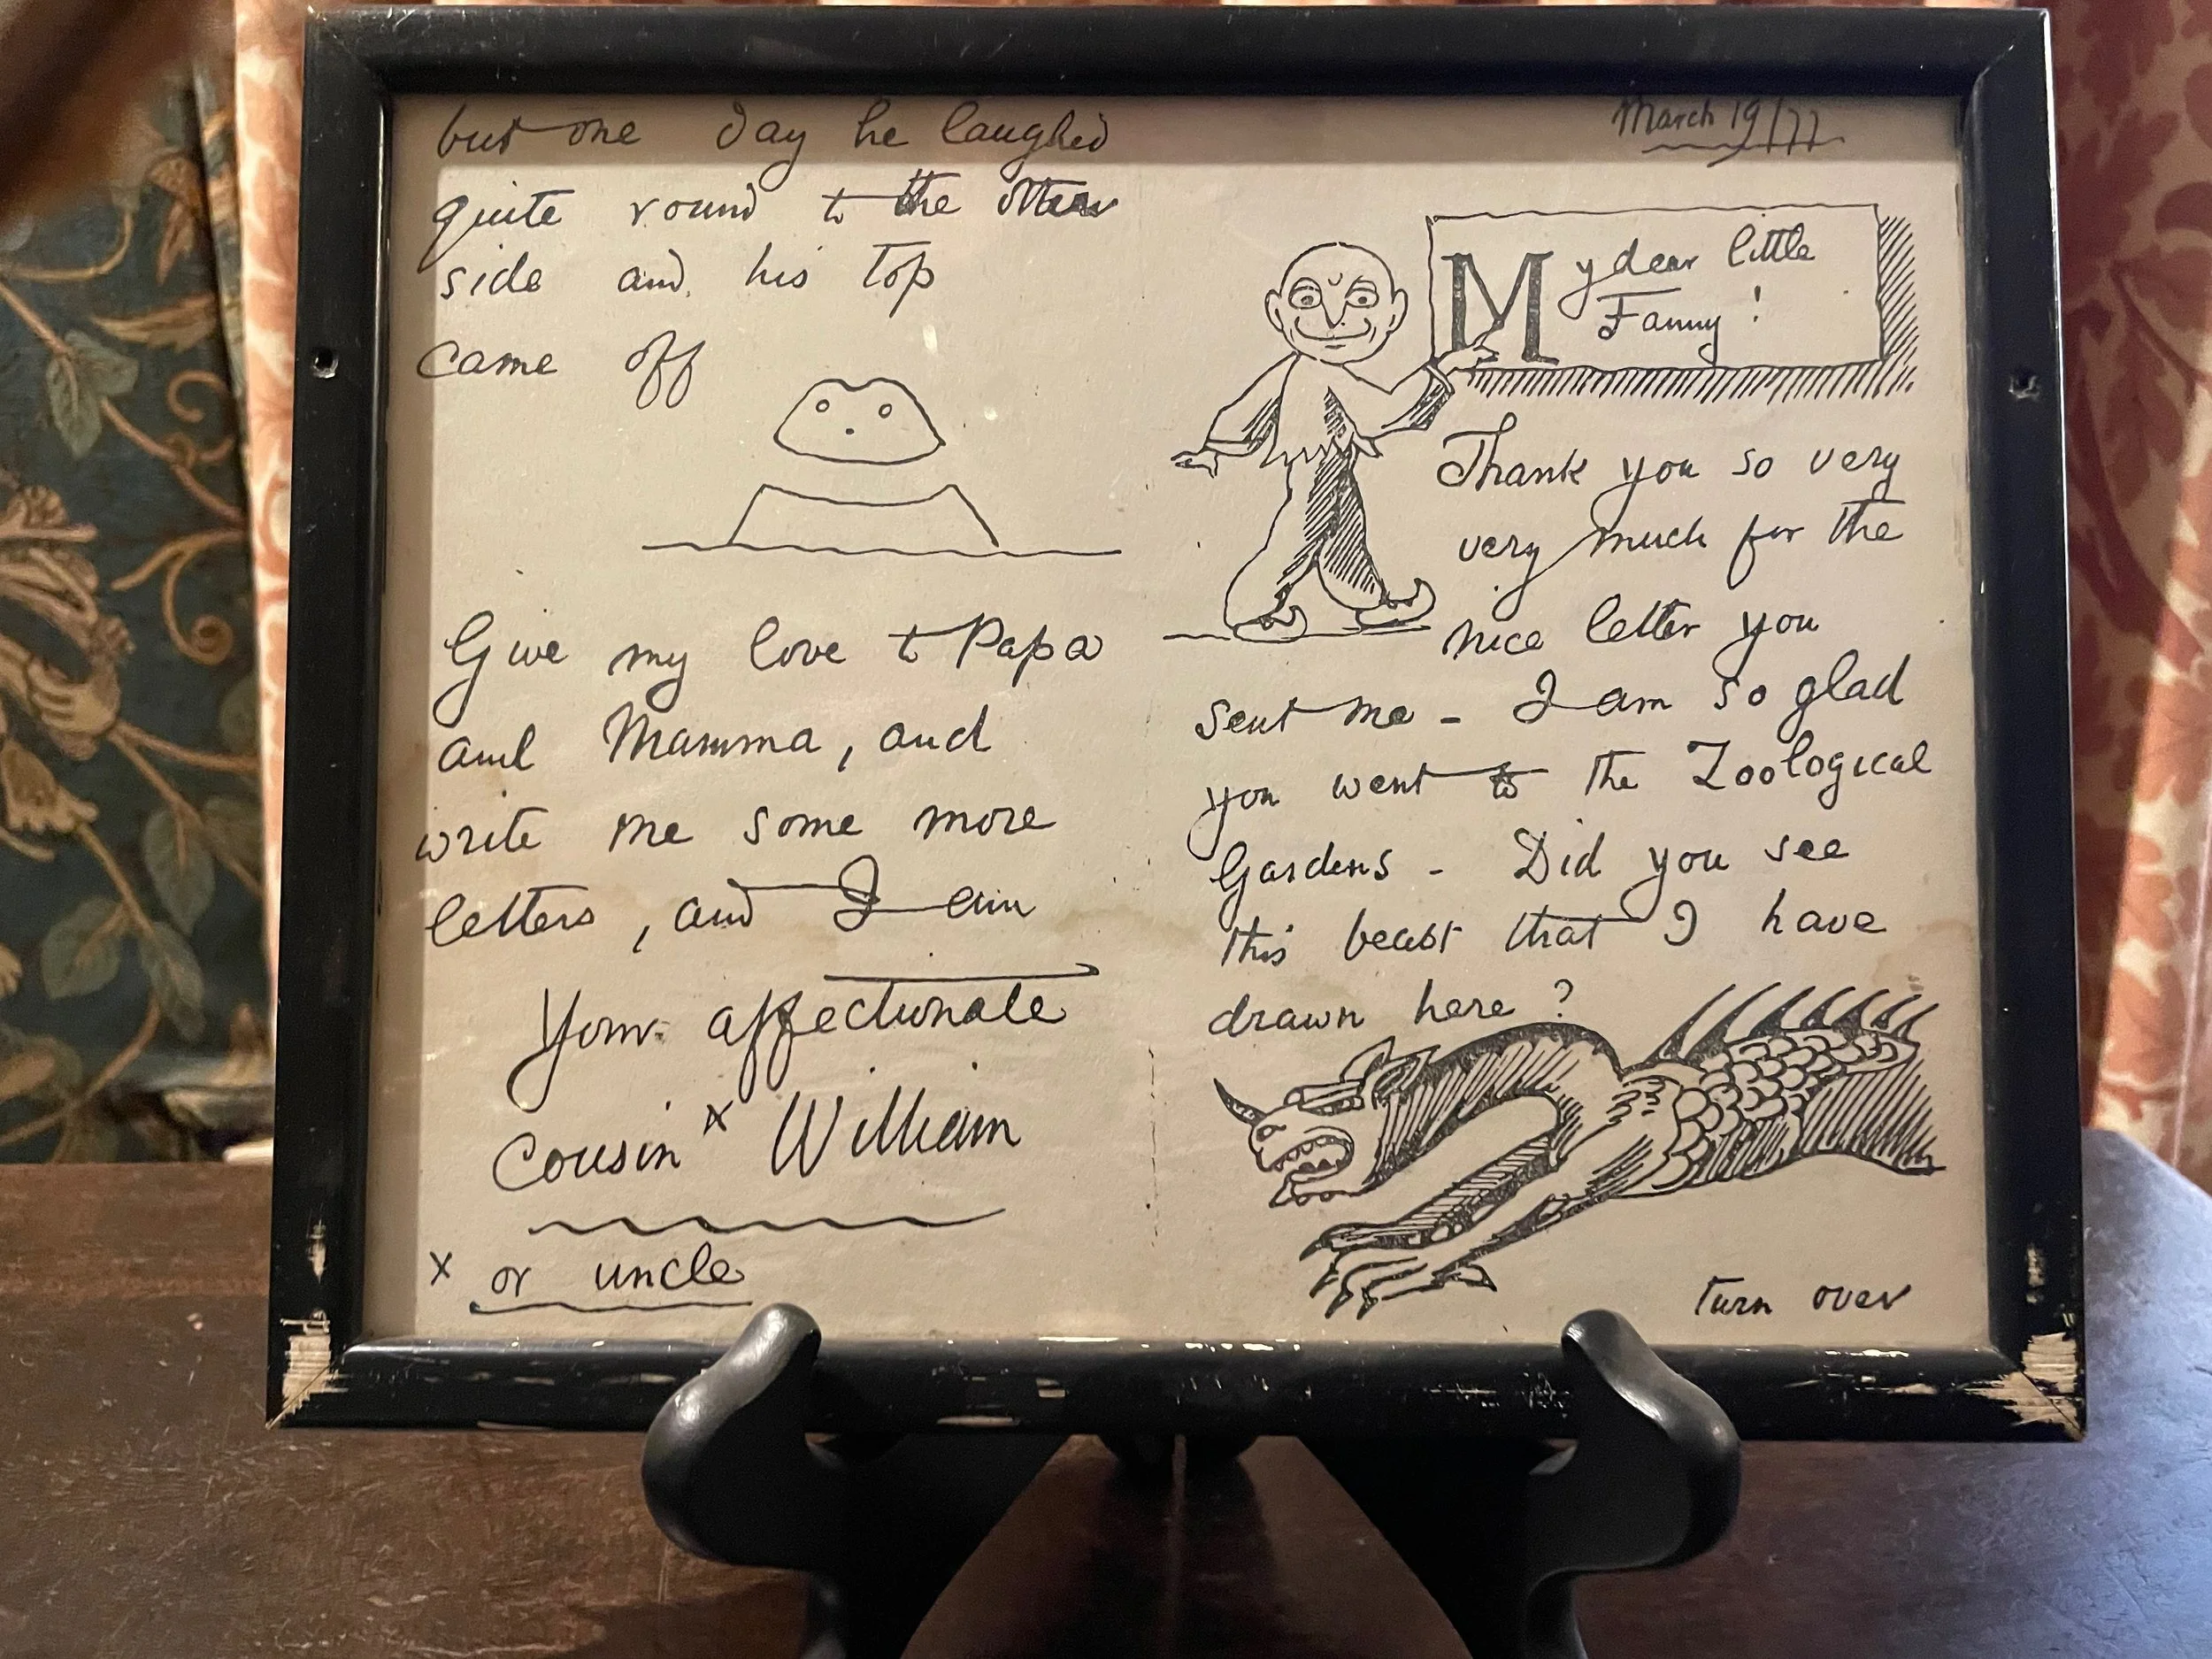 March 19/77
My dear little
Fanny!
Thank you so very
very much for the
nice letter you
sent me - I am so glad
you went to the Zoological
Gardens - Did you see
this beast that I have
drawn here?
turn over
but one day he laughed
quite round to the other
side and his top
came off
Give my love to Papa
and Mamma, and
write me some more
letters, and I am
Your affectionate
Cousin x William
x or uncle